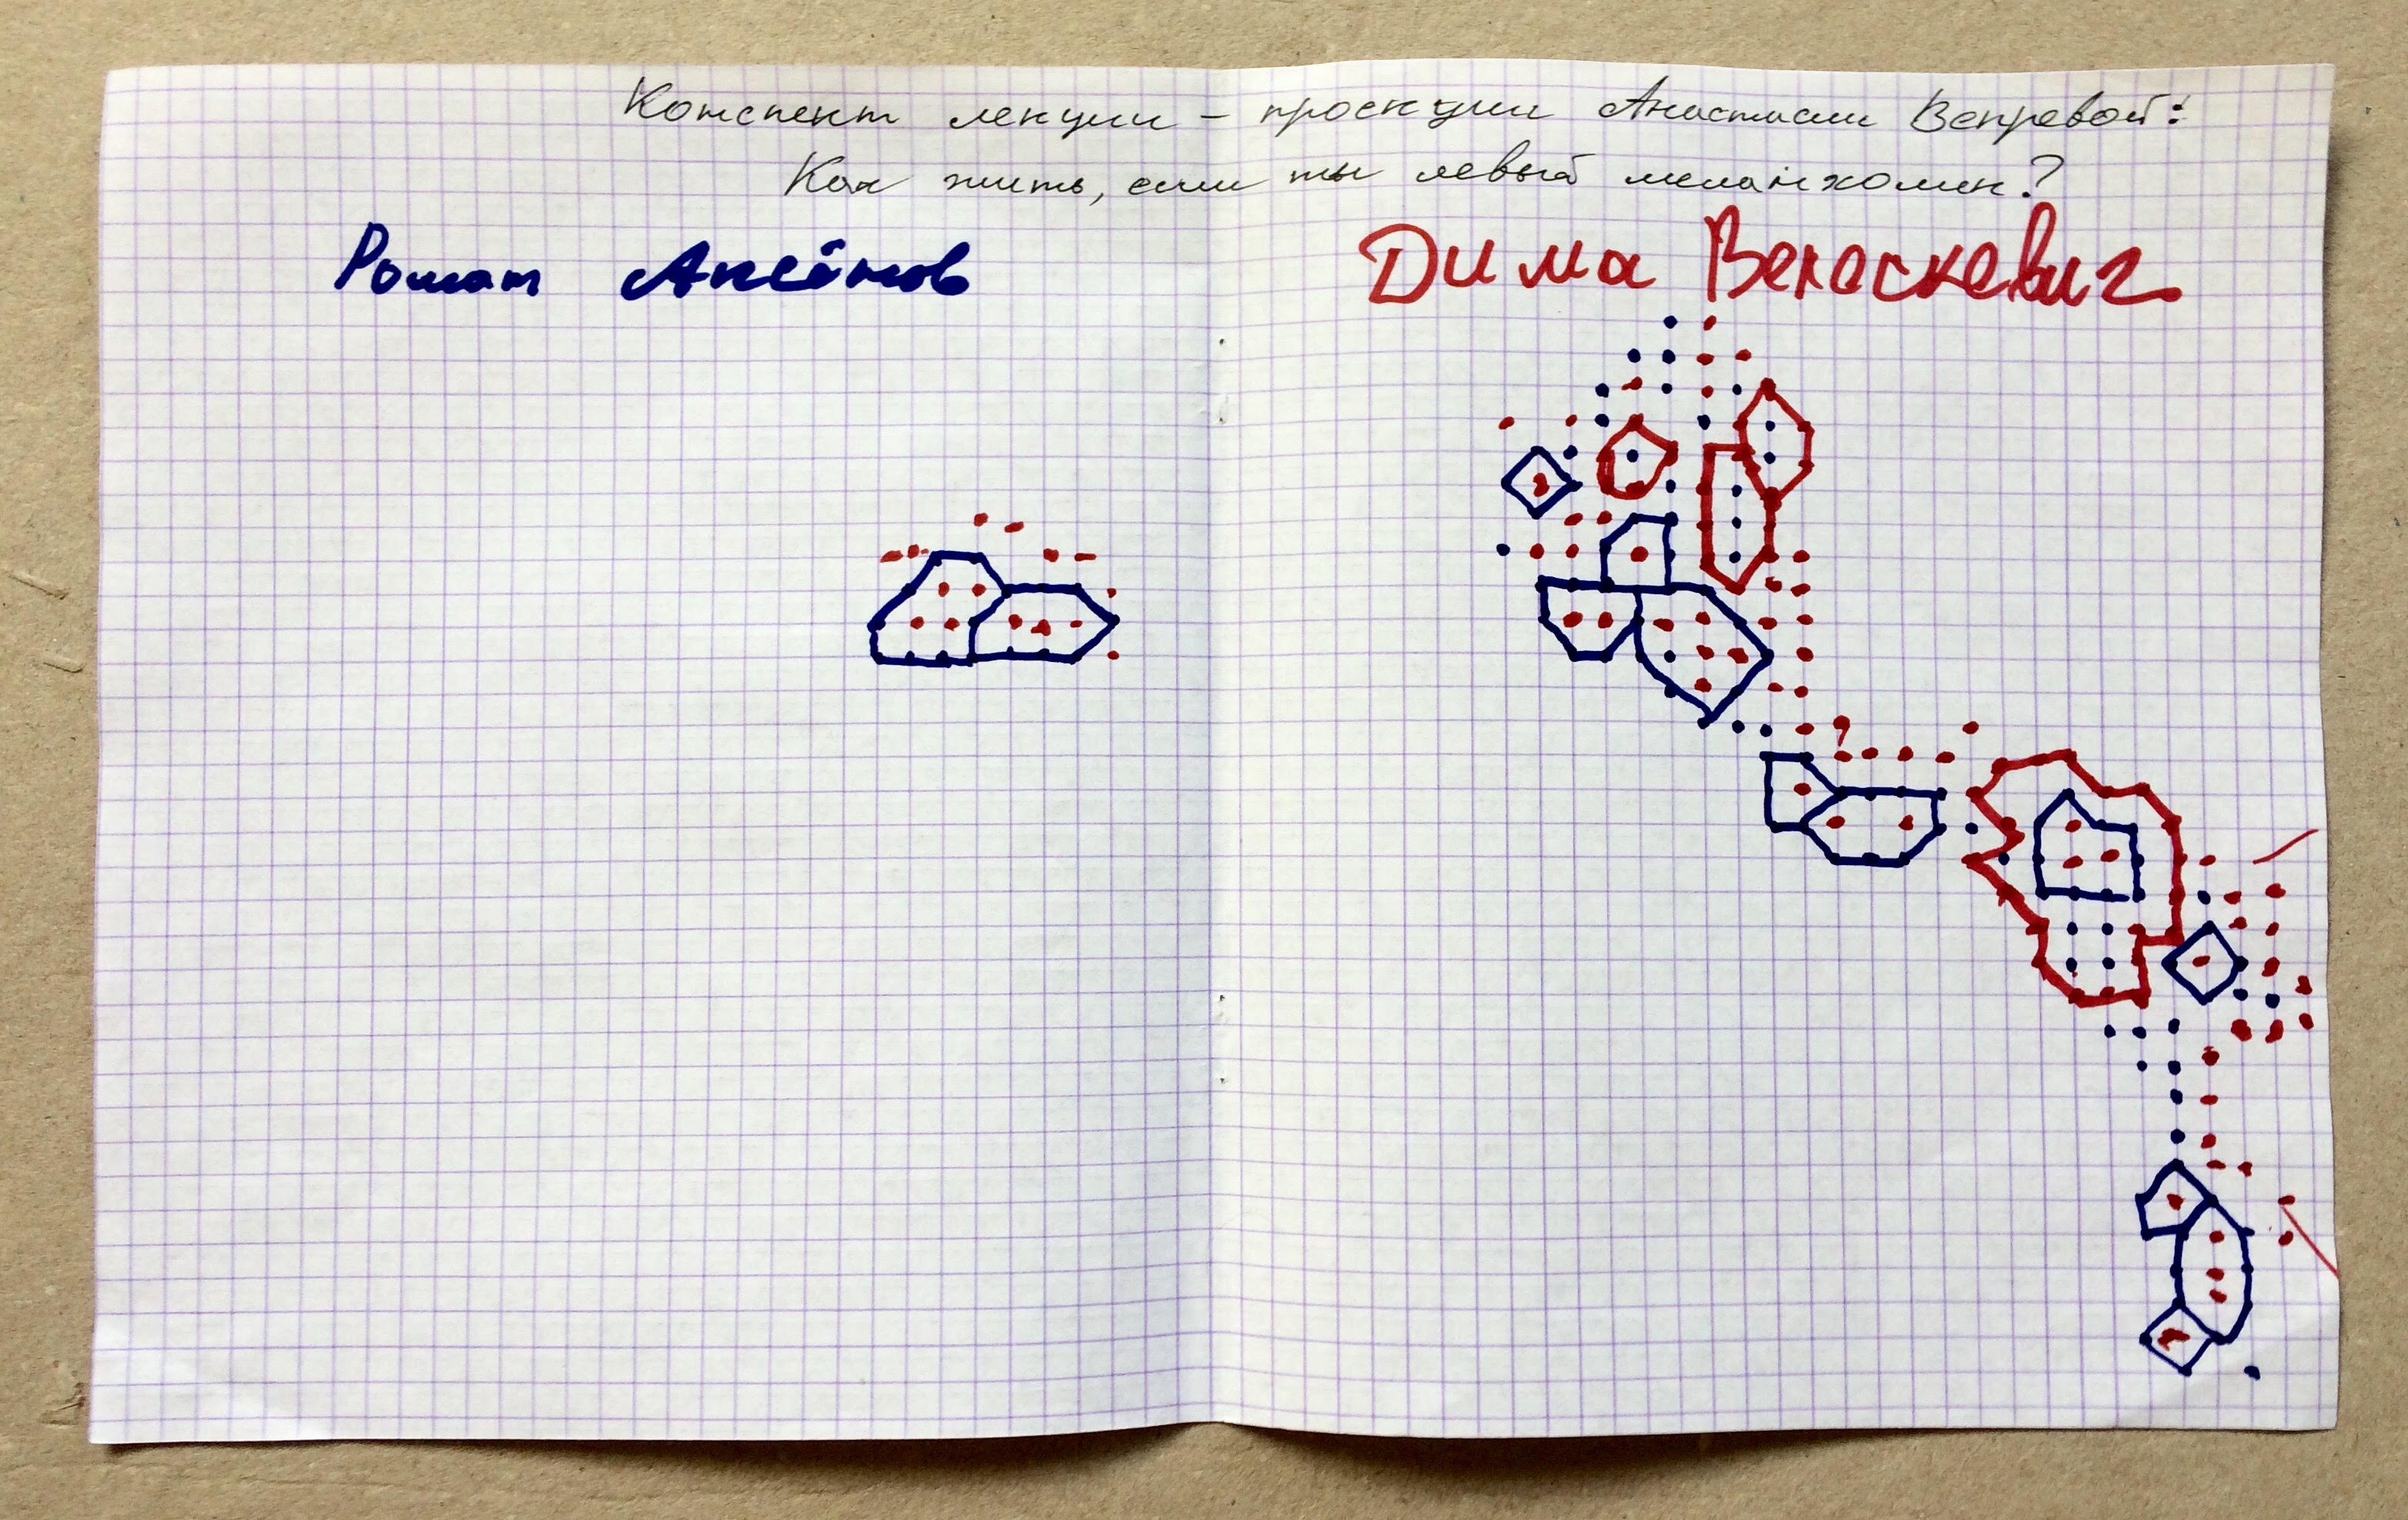 Конспект лекции – проекции Анастасии Вепревой:
Как жить, если ты левый меланхолик?
Роман Аксёнов
Дима Веласкевич